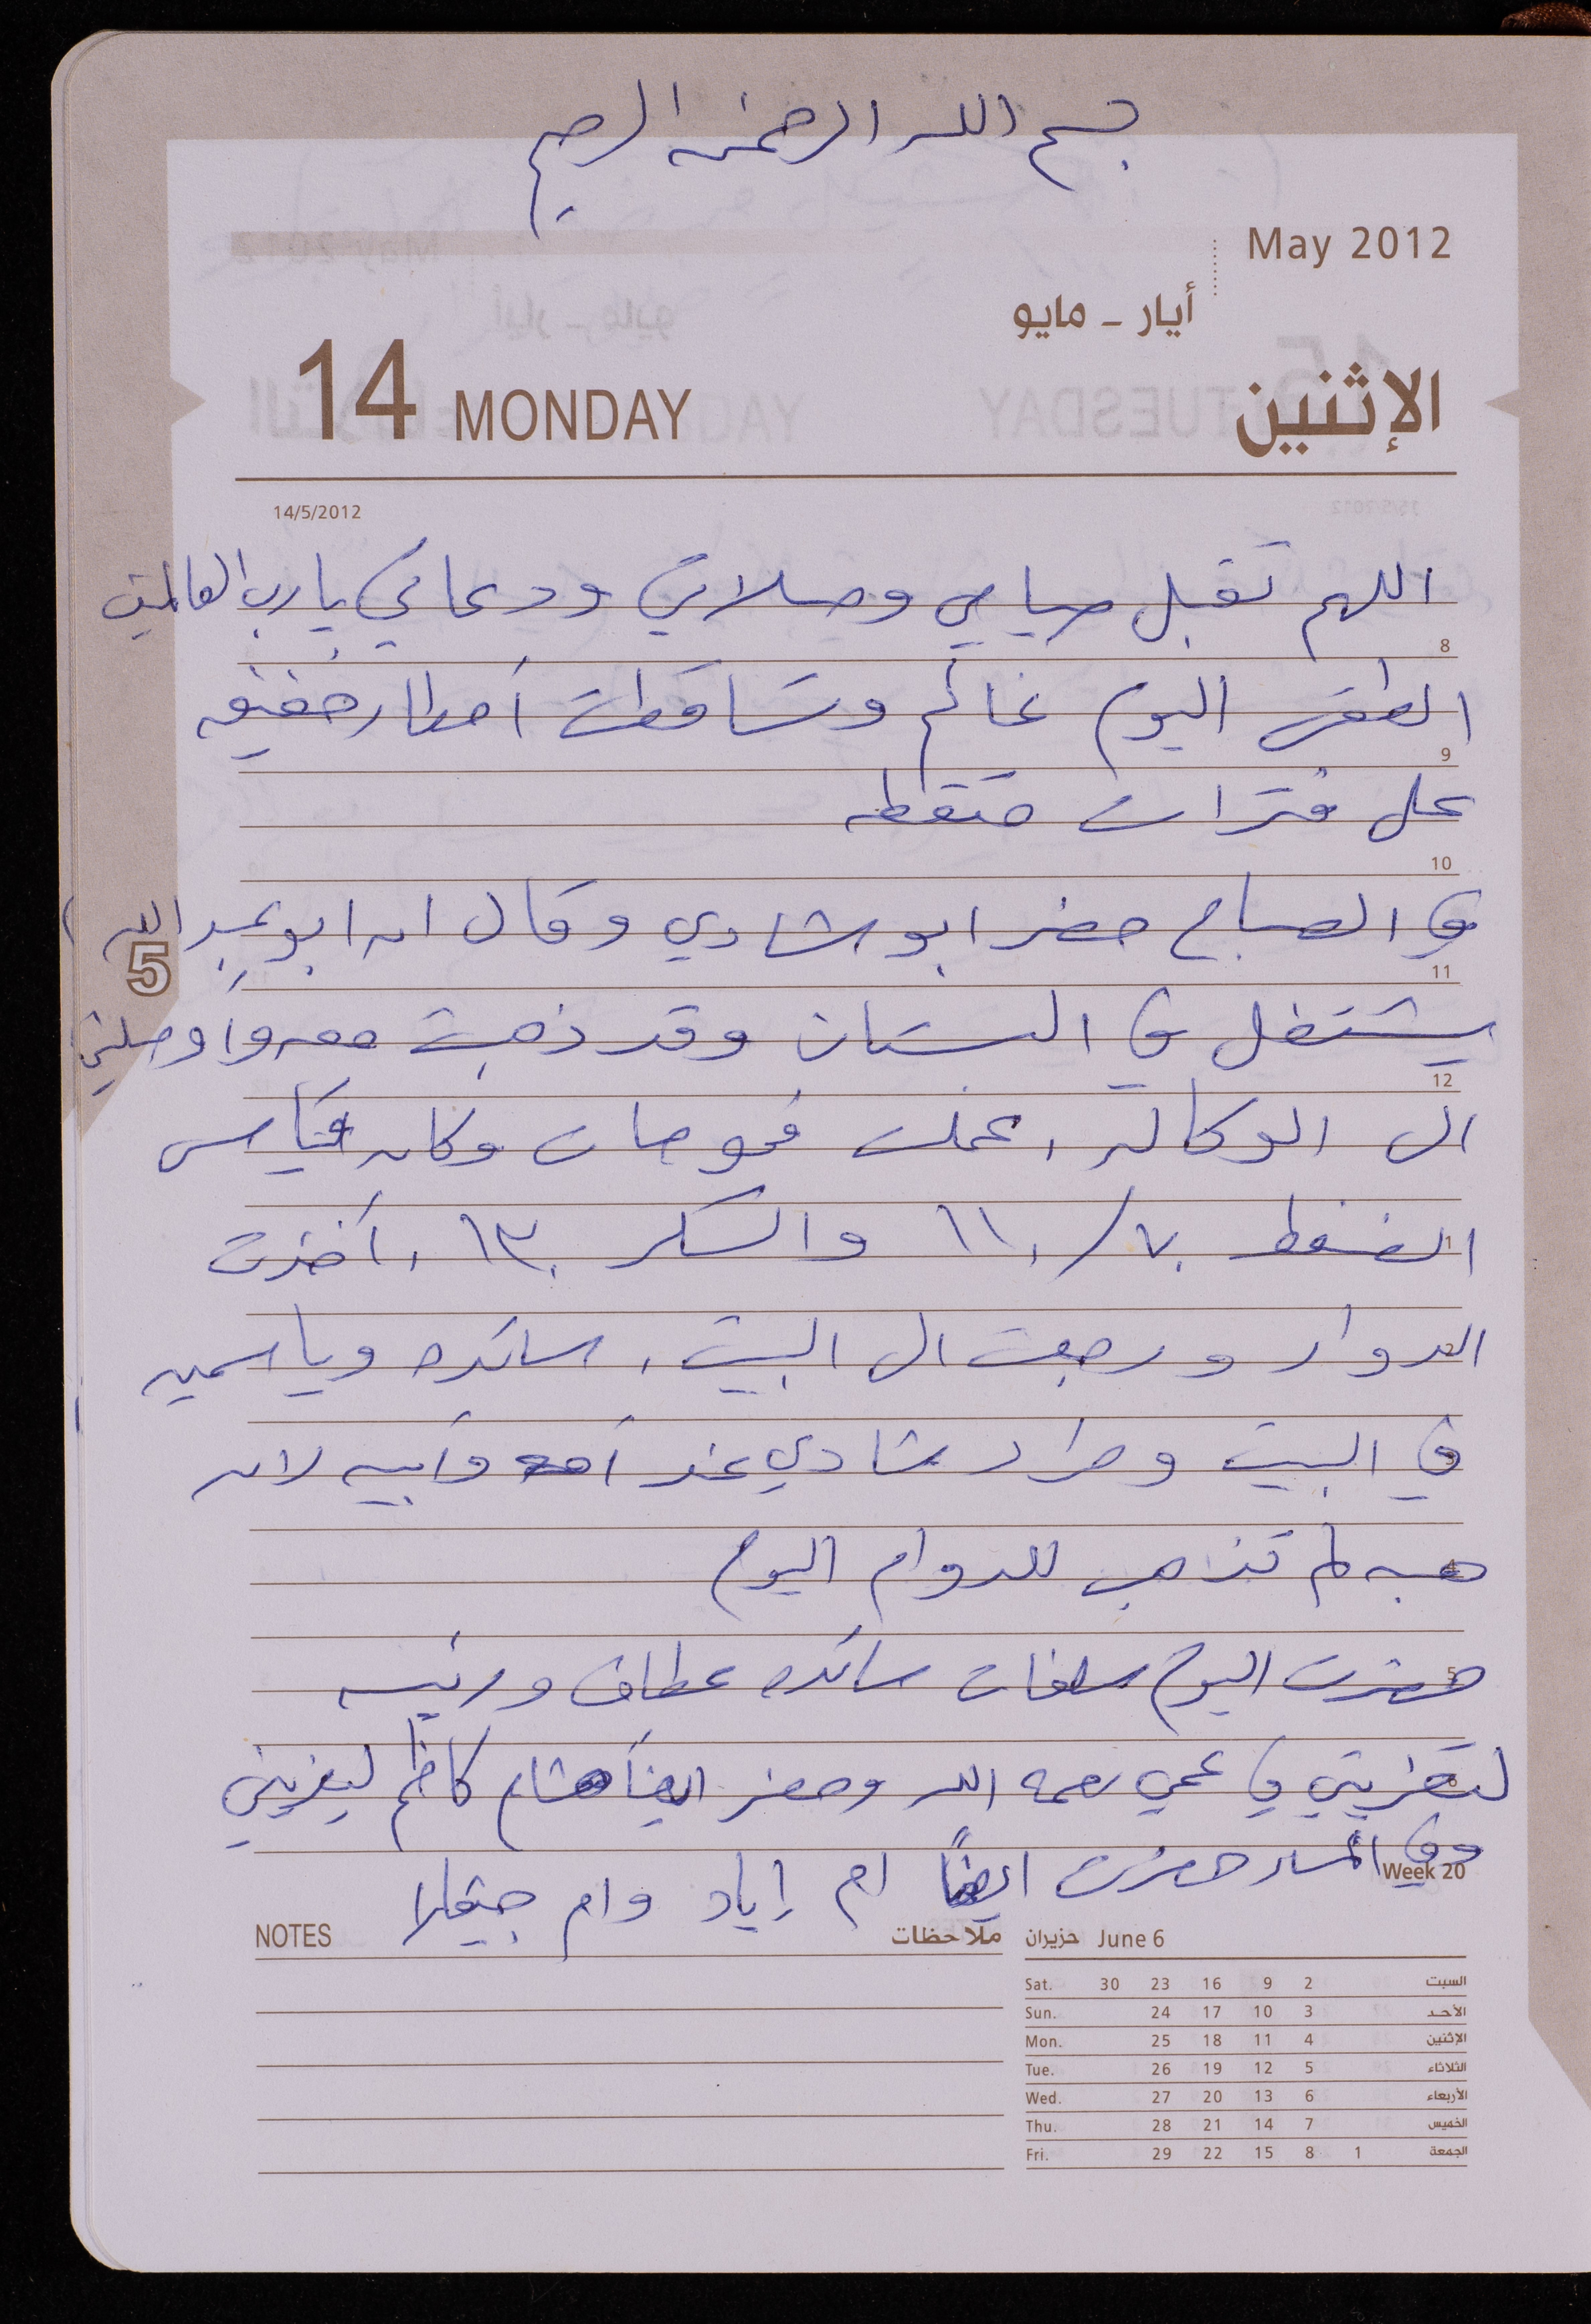 بسم الله الرحمن الرحيم
May 2012
أيار - مايو
14 MONDAY الإثنين
14/5/2012
اللهم تقبل صيامي وصلاتي ودعائي يا رب العالمين
8
الطقس اليوم غائم وتساقطت أمطار خفيفه
9
على فترات متقطعه
10
في الصباح حضر ابو شادي وقال ان ابو عبد الله
5
11
يشتغل في البستان وقد ذهبت معه وأوصلني
12
الى الوكاله , عملت فحوصات وكان قياس
1
الضغط ٧٠/١١٠ والسكر ١٣٠ , أخذت
الدواء ورجعت الى البيت , سائده وياسمين
في البيت ومراد شادي عند أمه وأبيه لان
هبه لم تذهب للدوام اليوم
5
حضرت اليوم سلفات سائده عطاف ورئيسه
لتعزيتي في عمي رحمه الله وحضر ايضاً هشام كاظم ليعزيني
وفي المساء حضرت ايضاً ام إياد وام
Week 20
NOTES ملاحظات
حزيران June 6
Sat. 30 23 16 9 2 السبت
Sun. 24 17 10 3 الأحد
Mon. 25 18 11 4 الإثنين
Tue. 26 19 12 5 الثلاثاء
Wed. 27 20 13 6 الأربعاء
Thu. 28 21 14 7 الخميس
Fri. 29 22 15 8 1 الجمعة